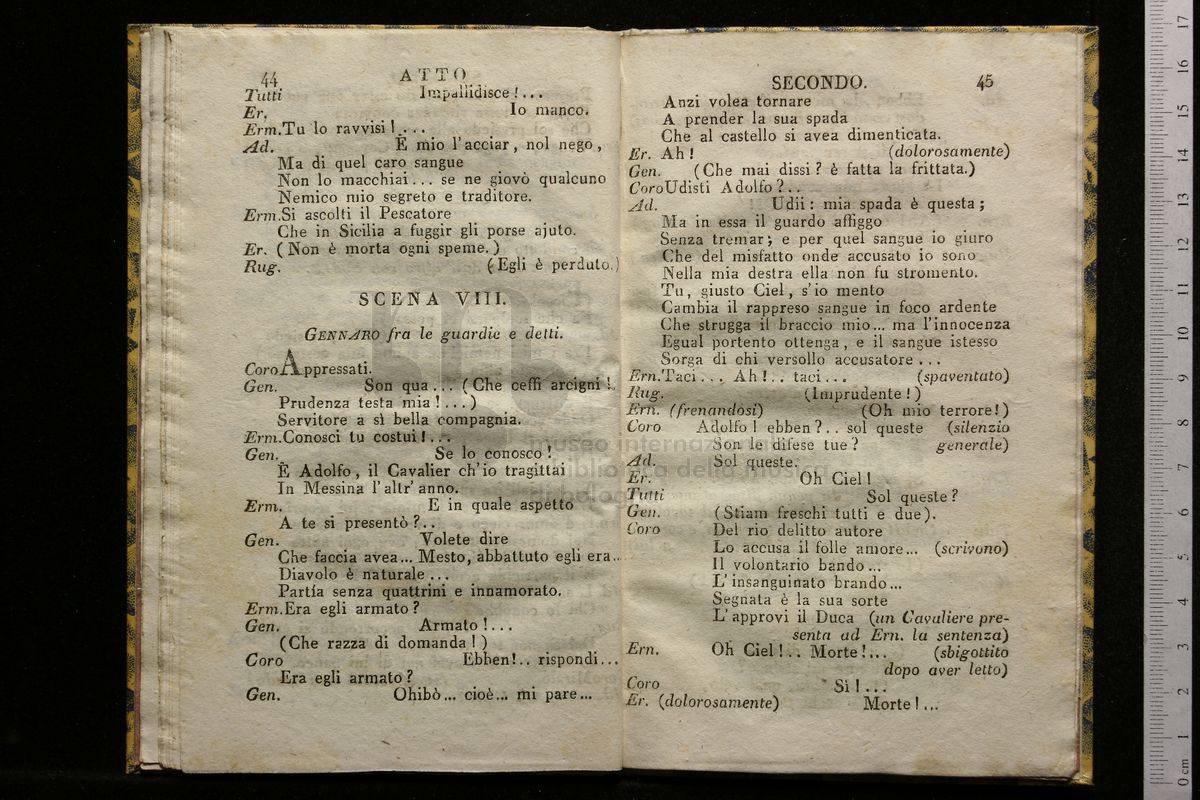 44
ATTO
Tutti Impallidisce!...
Er. Io manco.
Erm.Tu lo ravvisi!...
Ad. È mio l'acciar, nol nego,
Ma di quel caro sangue
Non lo macchiai... se ne giovò qualcuno
Nemico mio segreto e traditore.
Erm.Si ascolti il Pescatore
Che in Sicilia a fuggir gli porse ajuto.
Er. (Non è morta ogni speme.)
Rug. (Egli è perduto.)
SCENA VIII.
GENNARO fra le guardie e detti.
Coro Appressati.
Gen. Son qua... (Che ceffi arcigni!
Prudenza testa mia!...)
Servitore a sì bella compagnia.
Erm.Conosci tu costui!...
Gen. Se lo conosco!
È Adolfo, il Cavalier ch'io tragittai
In Messina l'altr'anno.
Erm. E in quale aspetto
A te si presentò?..
Gen. Volete dire
Che faccia avea... Mesto, abbattuto egli era...
Diavolo è naturale...
Partía senza quattrini e innamorato.
Erm.Era egli armato?
Gen. Armato!...
(Che razza di domanda!)
Coro Ebben!.. rispondi...
Era egli armato?
Gen. Ohibò... cioè... mi pare...
SECONDO.
45
Anzi volea tornare
A prender la sua spada
Che al castello si avea dimenticata.
Er. Ah! (dolorosamente)
Gen. (Che mai dissi? è fatta la frittata.)
Coro Udisti Adolfo?..
Ad. Udii: mia spada è questa;
Ma in essa il guardo affiggo
Senza tremar; e per quel sangue io giuro
Che del misfatto onde accusato io sono
Nella mia destra ella non fu stromento.
Tu, giusto Ciel, s'io mento
Cambia il rappreso sangue in foco ardente
Che strugga il braccio mio... ma l'innocenza
Egual portento ottenga, e il sangue istesso
Sorga di chi versollo accusatore...
Ern.Taci... Ah!.. taci... (spaventato)
Rug. (Imprudente!)
Ern. (frenandosi) (Oh mio terrore!)
Coro Adolfo! ebben?.. sol queste (silenzio
Son le difese tue? generale)
Ad. Sol queste.
Er. Oh Ciel!
Tutti Sol queste?
Gen. (Stiam freschi tutti e due).
Coro Del rio delitto autore
Lo accusa il folle amore... (scrivono)
Il volontario bando...
L'insanguinato brando...
Segnata è la sua sorte
L'approvi il Duca (un Cavaliere pre-
senta ad Ern. la sentenza)
Ern. Oh Ciel!.. Morte!... (sbigottito
dopo aver letto)
Coro Sì!...
Er. (dolorosamente) Morte!...
museo internazionale
biblioteca della musica
di bologna
17
16
15
14
13
12
11
10
9
8
7
6
5
4
3
2
1
0 cm